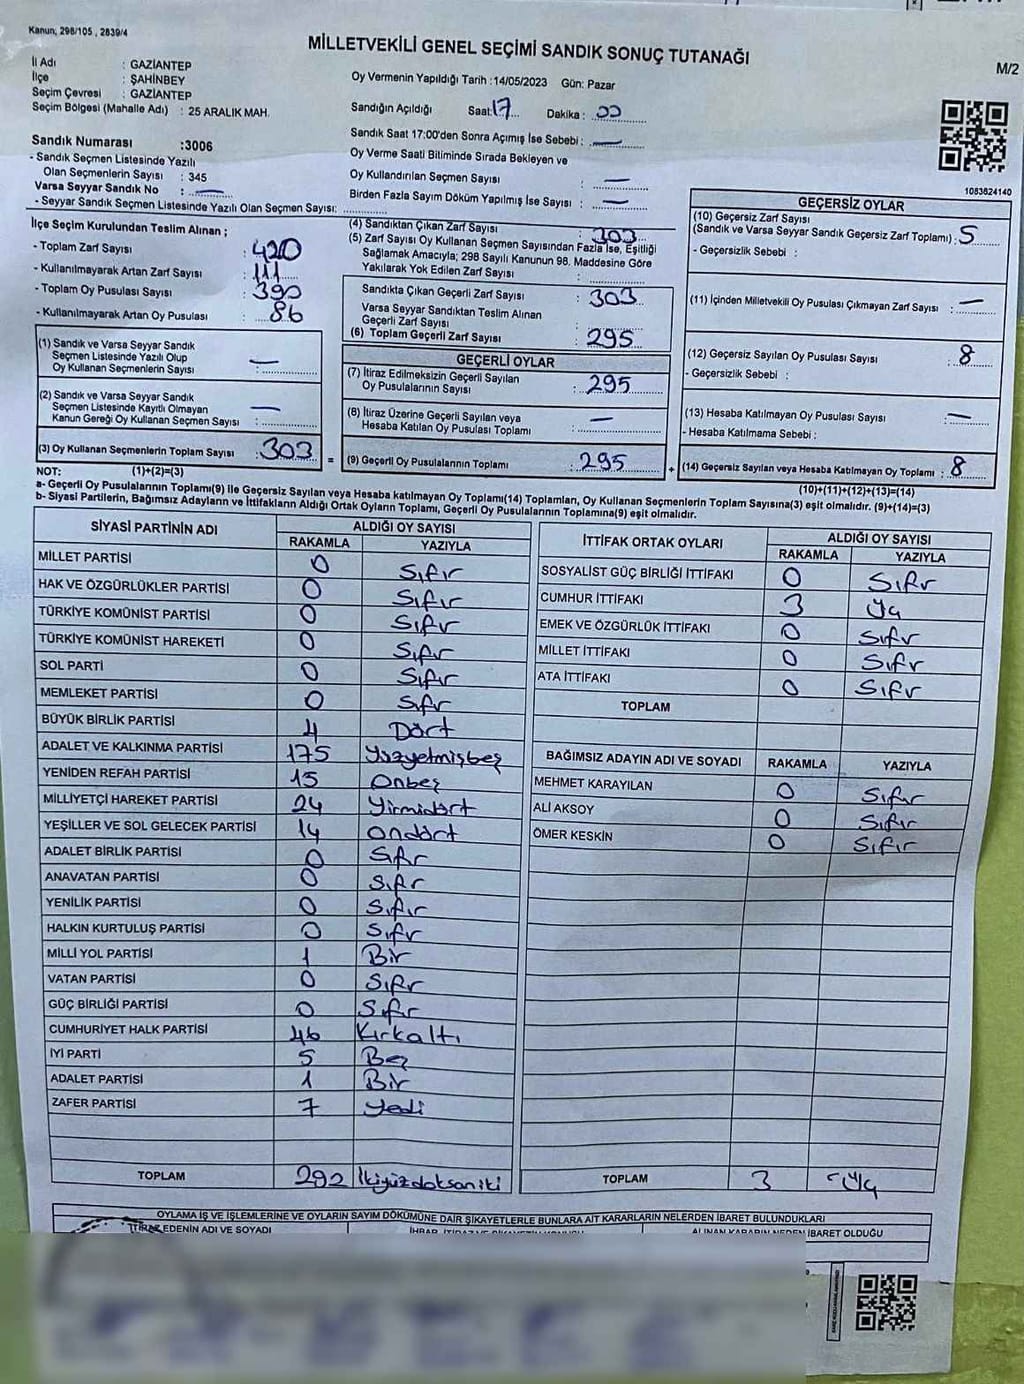 Kanun; 298/105 , 2839/4
MİLLETVEKİLİ GENEL SEÇİMİ SANDIK SONUÇ TUTANAĞI
M/2
İl Adı : GAZİANTEP
İlçe : ŞAHİNBEY
Seçim Çevresi : GAZİANTEP
Seçim Bölgesi (Mahalle Adı) : 25 ARALIK MAH.
Oy Vermenin Yapıldığı Tarih :14/05/2023 Gün: Pazar
Sandığın Açıldığı Saat: 17 Dakika : 00
Sandık Saat 17:00'den Sonra Açımış İse Sebebi : —
Oy Verme Saati Bitiminde Sırada Bekleyen ve
Oy Kullandırılan Seçmen Sayısı : —
Birden Fazla Sayım Döküm Yapılmış İse Sayısı : —
Sandık Numarası :3006
- Sandık Seçmen Listesinde Yazılı
Olan Seçmenlerin Sayısı : 345
Varsa Seyyar Sandık No : —
- Seyyar Sandık Seçmen Listesinde Yazılı Olan Seçmen Sayısı:
1083624140
İlçe Seçim Kurulundan Teslim Alınan ;
- Toplam Zarf Sayısı : 420
- Kullanılmayarak Artan Zarf Sayısı : 111
- Toplam Oy Pusulası Sayısı : 390
- Kullanılmayarak Artan Oy Pusulası : 86
(1) Sandık ve Varsa Seyyar Sandık
Seçmen Listesinde Yazılı Olup
Oy Kullanan Seçmenlerin Sayısı : —
(2) Sandık ve Varsa Seyyar Sandık
Seçmen Listesinde Kayıtlı Olmayan
Kanun Gereği Oy Kullanan Seçmen Sayısı : —
(3) Oy Kullanan Seçmenlerin Toplam Sayısı : 303
(4) Sandıktan Çıkan Zarf Sayısı : 303
(5) Zarf Sayısı Oy Kullanan Seçmen Sayısından Fazla İse, Eşitliği
Sağlamak Amacıyla; 298 Sayılı Kanunun 98. Maddesine Göre
Yakılarak Yok Edilen Zarf Sayısı :
Sandıkta Çıkan Geçerli Zarf Sayısı : 303
Varsa Seyyar Sandıktan Teslim Alınan
Geçerli Zarf Sayısı :
(6) Toplam Geçerli Zarf Sayısı : 295
GEÇERLİ OYLAR
(7) İtiraz Edilmeksizin Geçerli Sayılan
Oy Pusulalarının Sayısı : 295
(8) İtiraz Üzerine Geçerli Sayılan veya
Hesaba Katılan Oy Pusulası Toplamı : —
= (9) Geçerli Oy Pusulalarının Toplamı : 295
GEÇERSİZ OYLAR
(10) Geçersiz Zarf Sayısı
(Sandık ve Varsa Seyyar Sandık Geçersiz Zarf Toplamı) : 5
- Geçersizlik Sebebi :
(11) İçinden Milletvekili Oy Pusulası Çıkmayan Zarf Sayısı : —
(12) Geçersiz Sayılan Oy Pusulası Sayısı : 8
- Geçersizlik Sebebi :
(13) Hesaba Katılmayan Oy Pusulası Sayısı : —
- Hesaba Katılmama Sebebi :
+ (14) Geçersiz Sayılan veya Hesaba Katılmayan Oy Toplamı : 8
NOT: (1)+(2)=(3)
(10)+(11)+(12)+(13)=(14)
a- Geçerli Oy Pusulalarının Toplamı(9) ile Geçersiz Sayılan veya Hesaba katılmayan Oy Toplamı(14) Toplamları, Oy Kullanan Seçmenlerin Toplam Sayısına(3) eşit olmalıdır. (9)+(14)=(3)
b- Siyasi Partilerin, Bağımsız Adayların ve İttifakların Aldığı Ortak Oyların Toplamı, Geçerli Oy Pusulalarının Toplamına(9) eşit olmalıdır.
SİYASİ PARTİNİN ADI ALDIĞI OY SAYISI
RAKAMLA YAZIYLA
MİLLET PARTİSİ 0 Sıfır
HAK VE ÖZGÜRLÜKLER PARTİSİ 0 Sıfır
TÜRKİYE KOMÜNİST PARTİSİ 0 Sıfır
TÜRKİYE KOMÜNİST HAREKETİ 0 Sıfır
SOL PARTİ 0 Sıfır
MEMLEKET PARTİSİ 0 Sıfır
BÜYÜK BİRLİK PARTİSİ 4 Dört
ADALET VE KALKINMA PARTİSİ 175 Yüzyetmişbeş
YENİDEN REFAH PARTİSİ 15 Onbeş
MİLLİYETÇİ HAREKET PARTİSİ 24 Yirmidört
YEŞİLLER VE SOL GELECEK PARTİSİ 14 Ondört
ADALET BİRLİK PARTİSİ 0 Sıfır
ANAVATAN PARTİSİ 0 Sıfır
YENİLİK PARTİSİ 0 Sıfır
HALKIN KURTULUŞ PARTİSİ 0 Sıfır
MİLLİ YOL PARTİSİ 1 Bir
VATAN PARTİSİ 0 Sıfır
GÜÇ BİRLİĞİ PARTİSİ 0 Sıfır
CUMHURİYET HALK PARTİSİ 46 Kırkaltı
İYİ PARTİ 5 Beş
ADALET PARTİSİ 1 Bir
ZAFER PARTİSİ 7 Yedi
TOPLAM 292 İkiyüzdoksaniki
İTTİFAK ORTAK OYLARI ALDIĞI OY SAYISI
RAKAMLA YAZIYLA
SOSYALİST GÜÇ BİRLİĞİ İTTİFAKI 0 Sıfır
CUMHUR İTTİFAKI 3 Üç
EMEK VE ÖZGÜRLÜK İTTİFAKI 0 Sıfır
MİLLET İTTİFAKI 0 Sıfır
ATA İTTİFAKI 0 Sıfır
TOPLAM
BAĞIMSIZ ADAYIN ADI VE SOYADI RAKAMLA YAZIYLA
MEHMET KARAYILAN 0 Sıfır
ALİ AKSOY 0 Sıfır
ÖMER KESKİN 0 Sıfır
TOPLAM 3 Üç
OYLAMA İŞ VE İŞLEMLERİNE VE OYLARIN SAYIM DÖKÜMÜNE DAİR ŞİKAYETLERLE BUNLARA AİT KARARLARIN NELERDEN İBARET BULUNDUKLARI
İTİRAZ EDENİN ADI VE SOYADI
ALINAN KARARIN NEDEN İBARET OLDUĞU